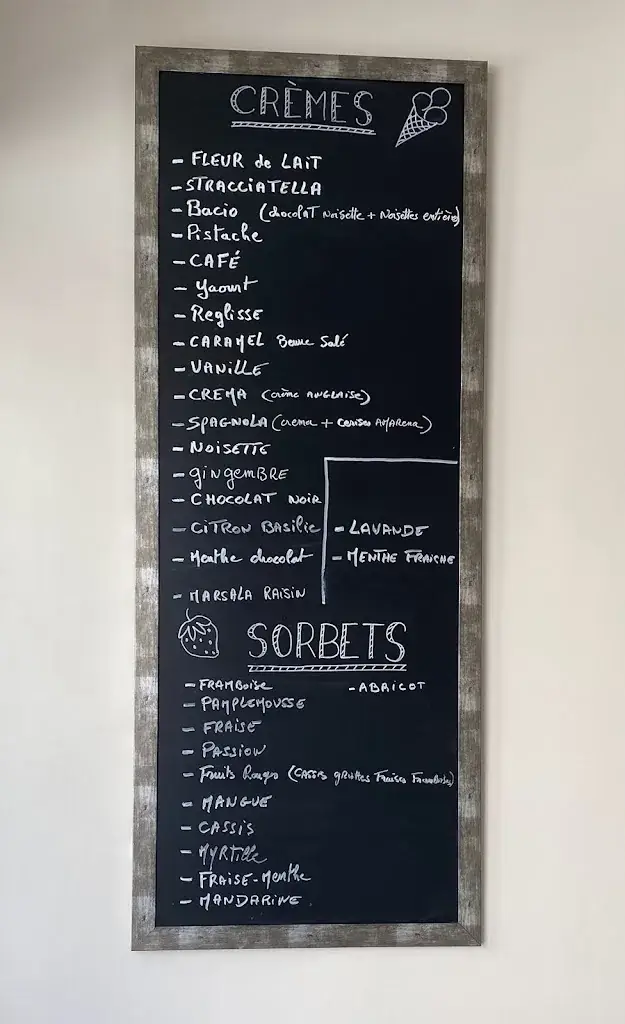 CRÈMES
- FLEUR de LAIT
- STRACCIATELLA
- Bacio (chocolaT Noisette + Noisettes entière)
- Pistache
- CAFÉ
- Yaourt
- Reglisse
- CARAMEL Beurre Salé
- VANILLE
- CREMA (crème ANGLAISE)
- SPAGNOLA (crema + cerises AMARENA)
- NOISETTE
- gingEMBRE
- CHOCOLAT NOIR
- CITRON BASILIC
- Menthe chocolat
- MARSALA RAISIN
- LAVANDE
- MENTHE FRAICHE
SORBETS
- FRAMBOISE
- PAMPLEMOUSSE
- FRAISE
- PASSION
- Fruits Rouges (CASSIS griottes Fraises Framboises)
- MANGUE
- CASSIS
- MYRTille
- FRAISE-Menthe
- MANDARINE
- ABRICOT